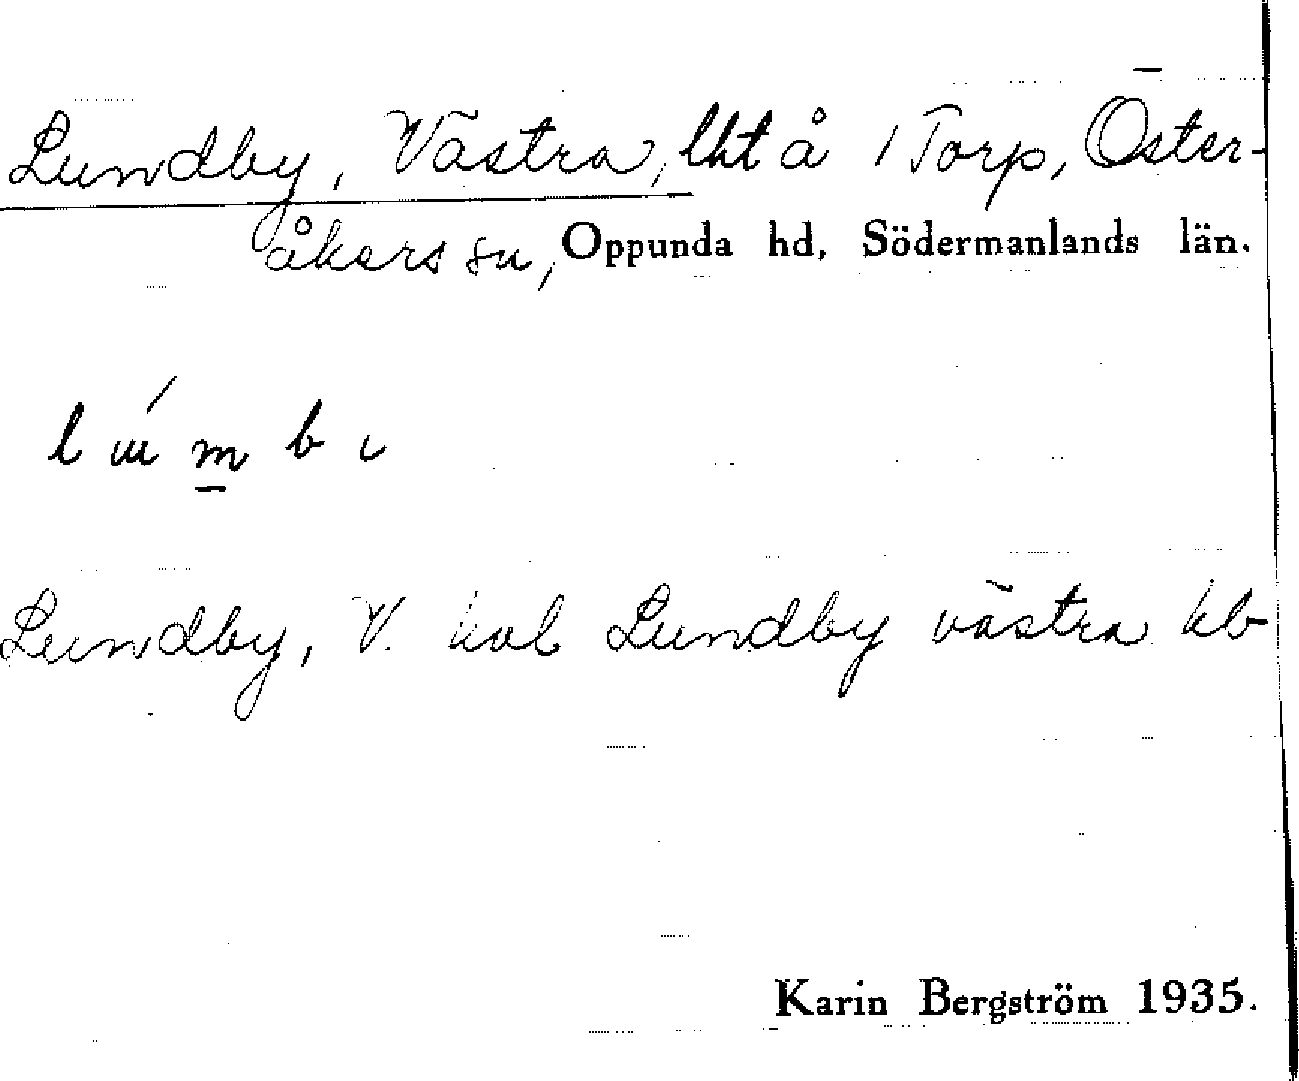 Lundby, Västra, lht å 1 Torp, Öster-
åkers sn, Oppunda hd, Södermanlands län.
l m b
Lundby, V. kol Lundby västra kb
Karin Bergström 1935.